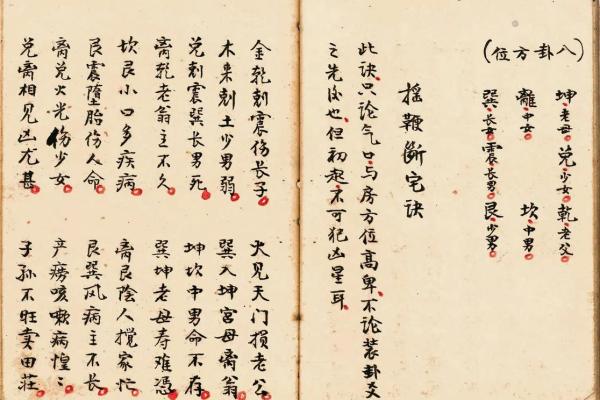 (八卦方位)
坤老母 兑少女 乾老父
離中女 坎中男
巽长女 震长男 艮少男
摇鞭斷宅诀
此诀只论气口与房方位高卑不论装卦爻
之先後也但初起不可犯凶星耳
金乾剋震伤长子 火见天门损老公
木来剋土少男弱 巽入坤宫母离翁
兑剋震巽长男死 坤坎中男命不存
离乾老翁主不久 巽坤老母寿难憑
坎艮小口多疾病 离艮陰人攪家忙
艮震墮胎伤人命 艮巽风病主不长
离兑火光伤少女 产痨咳嗽病惶々
兑离相见凶尤甚 子孙不旺卖田莊